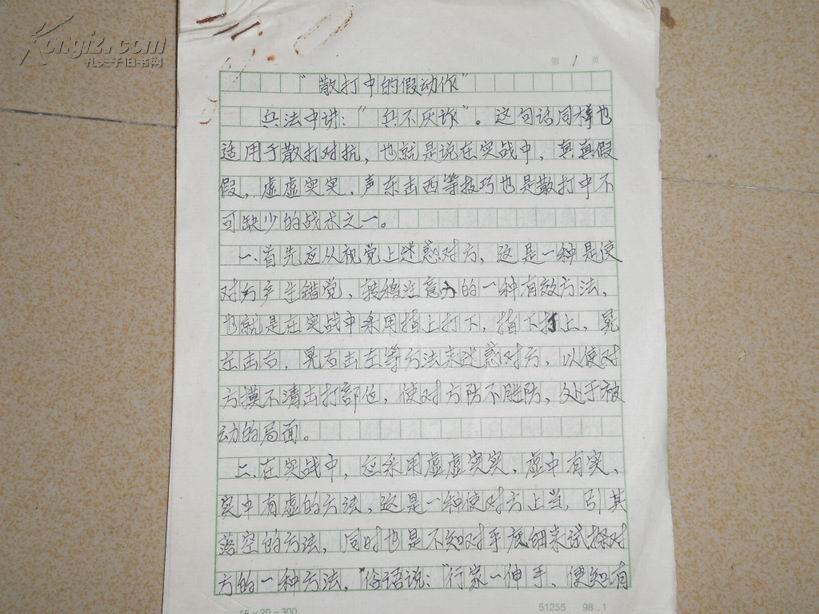 Kongfz.com
孔夫子旧书网
第 1 页
“散打中的假动作”
兵法中讲：“兵不厌诈”。这句话同样也
适用于散打对抗，也就是说在实战中，真真假
假，虚虚实实，声东击西等技巧也是散打中不
可缺少的战术之一。
一、首先应从视觉上迷惑对方，这是一种是使
对方产生错觉，转移注意力的一种有效方法，
也就是在实战中采用指上打下，指下打上，晃
左击右，晃右击左等方法来迷惑对方，以使对
方摸不清击打部位，使对方防不胜防，处于被
动的局面。
二、在实战中，应采用虚虚实实，虚中有实，
实中有虚的方法，这是一种使对方上当，引其
落空的方法，同时也是不知对手底细来试探对
方的一种方法，“俗语说：“行家一伸手，便知有
15×20=300
51255 98.1